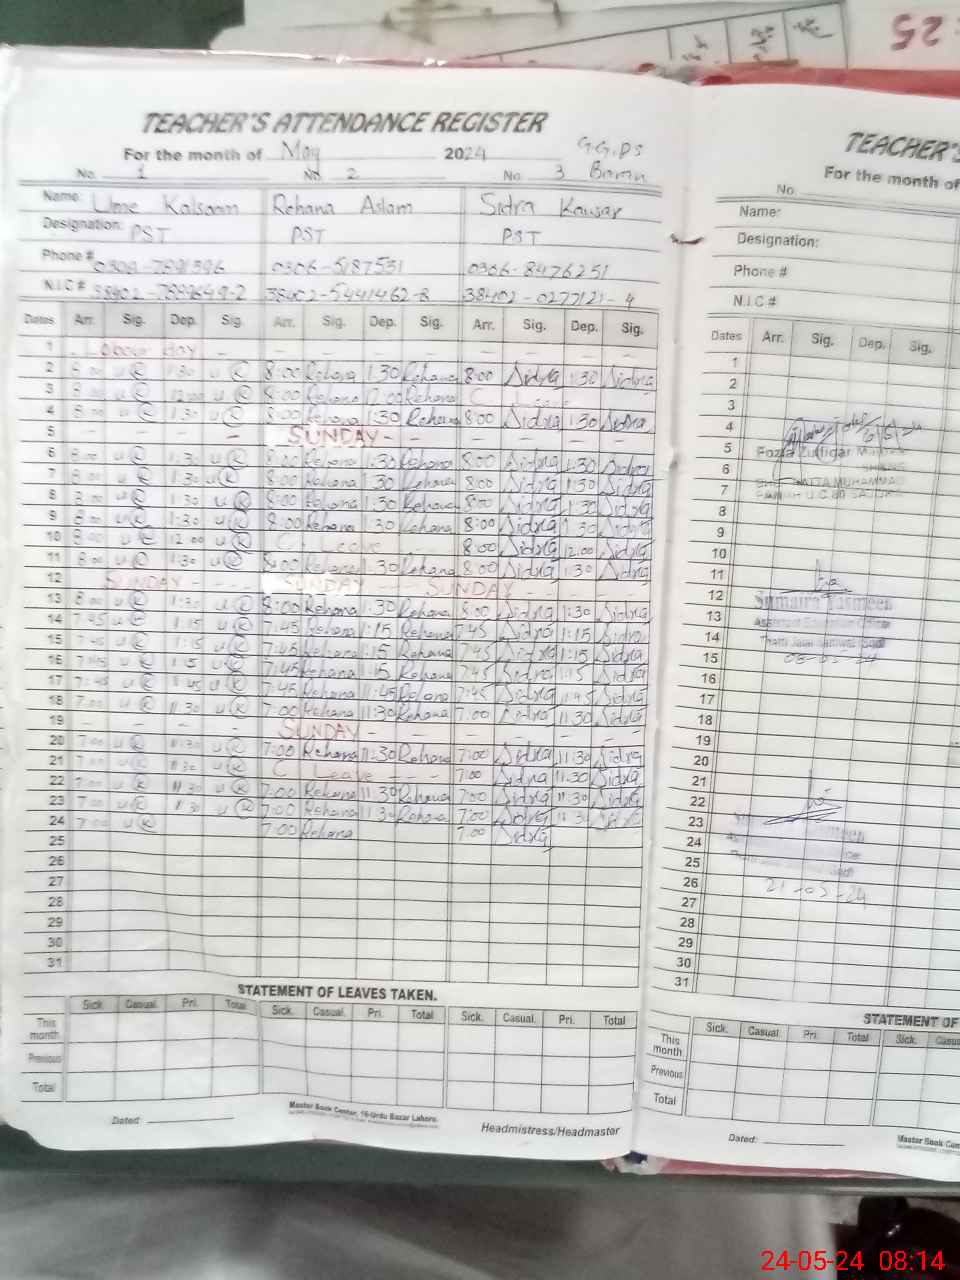 25
TEACHER'S ATTENDANCE REGISTER
For the month of May 2024 G.G.P.S
No. 1 No. 2 No. 3
Name: Ume Kalsoom Rehana Aslam Sidra Kausar
Designation: PST PST PST
Phone # 0306-5187531 0306-8476251
N.I.C # 38402-5441462-8 38402-0277121-4
Dates Arr. Sig. Dep. Sig. Arr. Sig. Dep. Sig. Arr. Sig. Dep. Sig.
1 Labour day
2 8:00 UK 1:30 UK 8:00 Rehana 1:30 Rehana 8:00 Sidra 1:30 Sidra
3 8:00 UK 12:00 UK 8:00 Rehana 12:00 Rehana C. Leave
4 8:00 UK 1:30 UK 8:00 Rehana 1:30 Rehana 8:00 Sidra 1:30 Sidra
5 SUNDAY
6 8:00 UK 1:30 UK 8:00 Rehana 1:30 Rehana 8:00 Sidra 1:30 Sidra
7 8:00 UK 1:30 UK 8:00 Rehana 1:30 Rehana 8:00 Sidra 1:30 Sidra
8 8:00 UK 1:30 UK 8:00 Rehana 1:30 Rehana 8:00 Sidra 1:30 Sidra
9 8:00 UK 1:30 UK 8:00 Rehana 1:30 Rehana 8:00 Sidra 1:30 Sidra
10 8:00 UK 12:00 UK C. Leave 8:00 Sidra 12:00 Sidra
11 8:00 UK 1:30 UK 8:00 Rehana 1:30 Rehana 8:00 Sidra 1:30 Sidra
12 SUNDAY SUNDAY SUNDAY
13 8:00 UK 1:30 UK 8:00 Rehana 1:30 Rehana 8:00 Sidra 1:30 Sidra
14 7:45 UK 1:15 UK 7:45 Rehana 1:15 Rehana 7:45 Sidra 1:15 Sidra
15 7:45 UK 1:15 UK 7:45 Rehana 1:15 Rehana 7:45 Sidra 1:15 Sidra
16 7:45 UK 1:15 UK 7:45 Rehana 1:15 Rehana 7:45 Sidra 1:15 Sidra
17 7:45 UK 11:45 UK 7:45 Rehana 11:45 Rehana 7:45 Sidra 11:45 Sidra
18 7:00 UK 11:30 UK 7:00 Rehana 11:30 Rehana 7:00 Sidra 11:30 Sidra
19 SUNDAY
20 7:00 UK 11:30 UK 7:00 Rehana 11:30 Rehana 7:00 Sidra 11:30 Sidra
21 7:00 UK 11:30 UK C. Leave 7:00 Sidra 11:30 Sidra
22 7:00 UK 11:30 UK 7:00 Rehana 11:30 Rehana 7:00 Sidra 11:30 Sidra
23 7:00 UK 11:30 UK 7:00 Rehana 11:30 Rehana 7:00 Sidra 11:30 Sidra
24 7:00 UK 7:00 Rehana 7:00 Sidra
25
26
27
28
29
30
31
STATEMENT OF LEAVES TAKEN.
Sick. Casual. Pri. Total Sick. Casual. Pri. Total Sick. Casual. Pri. Total
This month
Previous
Total
Master Book Center, 16-Urdu Bazar Lahore.
Dated: Headmistress/Headmaster
TEACHER'S
For the month of
No.
Name:
Designation:
Phone #
N.I.C.#
Dates Arr. Sig. Dep. Sig.
1
2
3
4
5 Fozia Zulfiqar
6
7 MUHAMMAD
8
9
10
11
12 Sumaira Yasmeen
13 Assistant Education Officer
14
15 08-05-24
16
17
18
19
20
21
22
23
24
25
26 21-05-24
27
28
29
30
31
STATEMENT OF
Sick. Casual. Pri. Total Sick.
This month
Previous
Total
Dated: Master Book
24-05-24 08:14